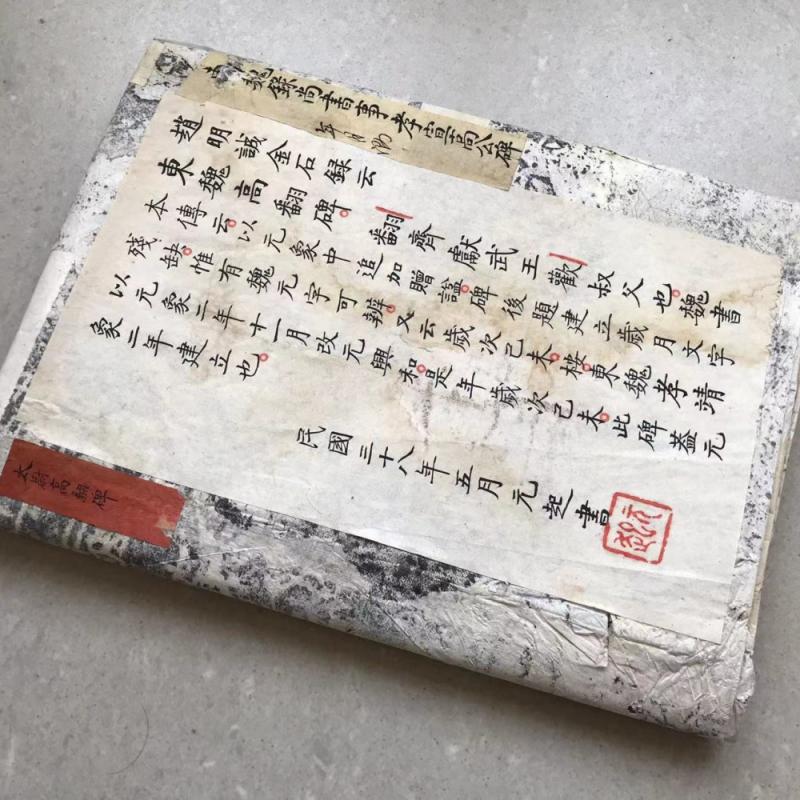 魏錄尚書事孝宣高公碑
趙明誠金石録云
東魏高翻碑。翻齊獻武王歡叔父也。魏書
本傳云。以元象中追加贈謚。碑後題建立歲月文字
殘缺。惟有魏元字可辨。又云歲次己未。桉東魏孝靖
以元象二年十一月改元興和。是年歲次己未。此碑蓋元
象二年建立也。
民國三十八年五月元起書
太尉高翻碑